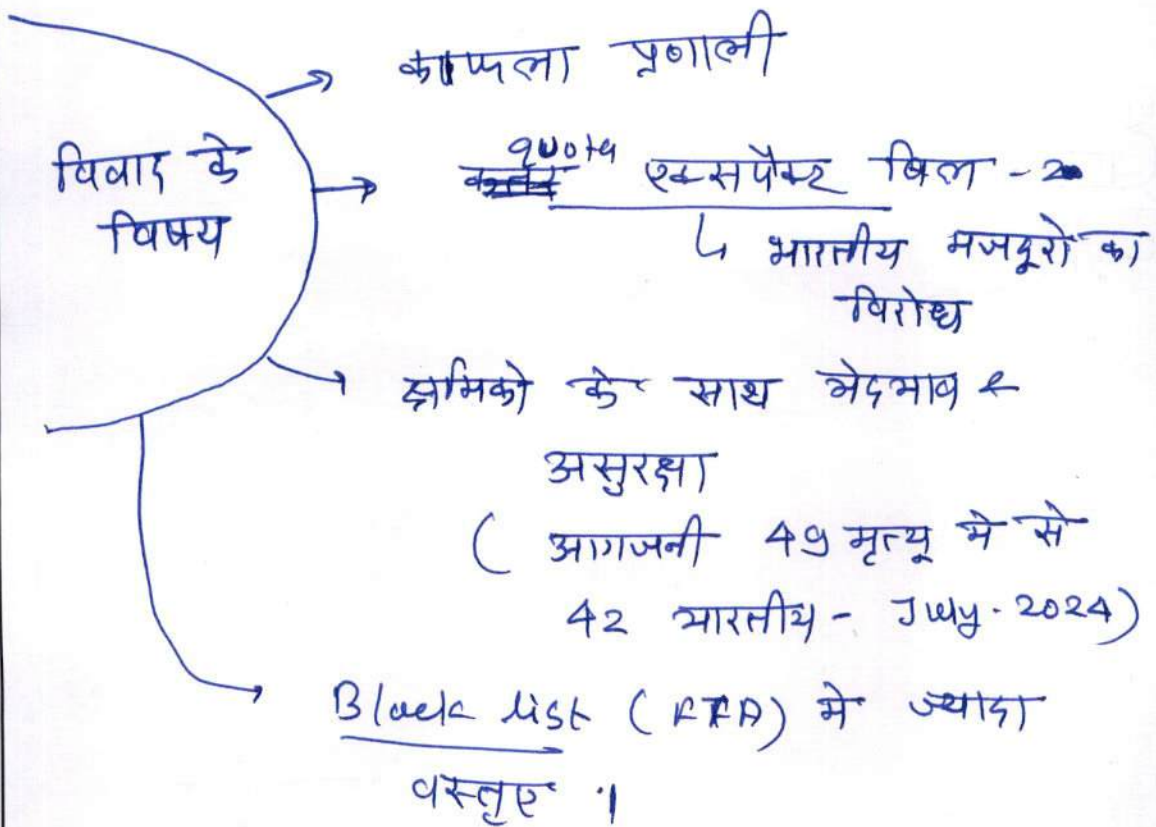 विवाद के
विषय
काफला प्रणाली
quota एक्सपैक्ट बिल - 2
भारतीय मजदूरो का
विरोध
श्रमिको के साथ भेदभाव &
असुरक्षा
( आगजनी 49 मृत्यू मे से
42 भारतीय - July. 2024)
Black list (FTA) मे ज्यादा
वस्तुए ।